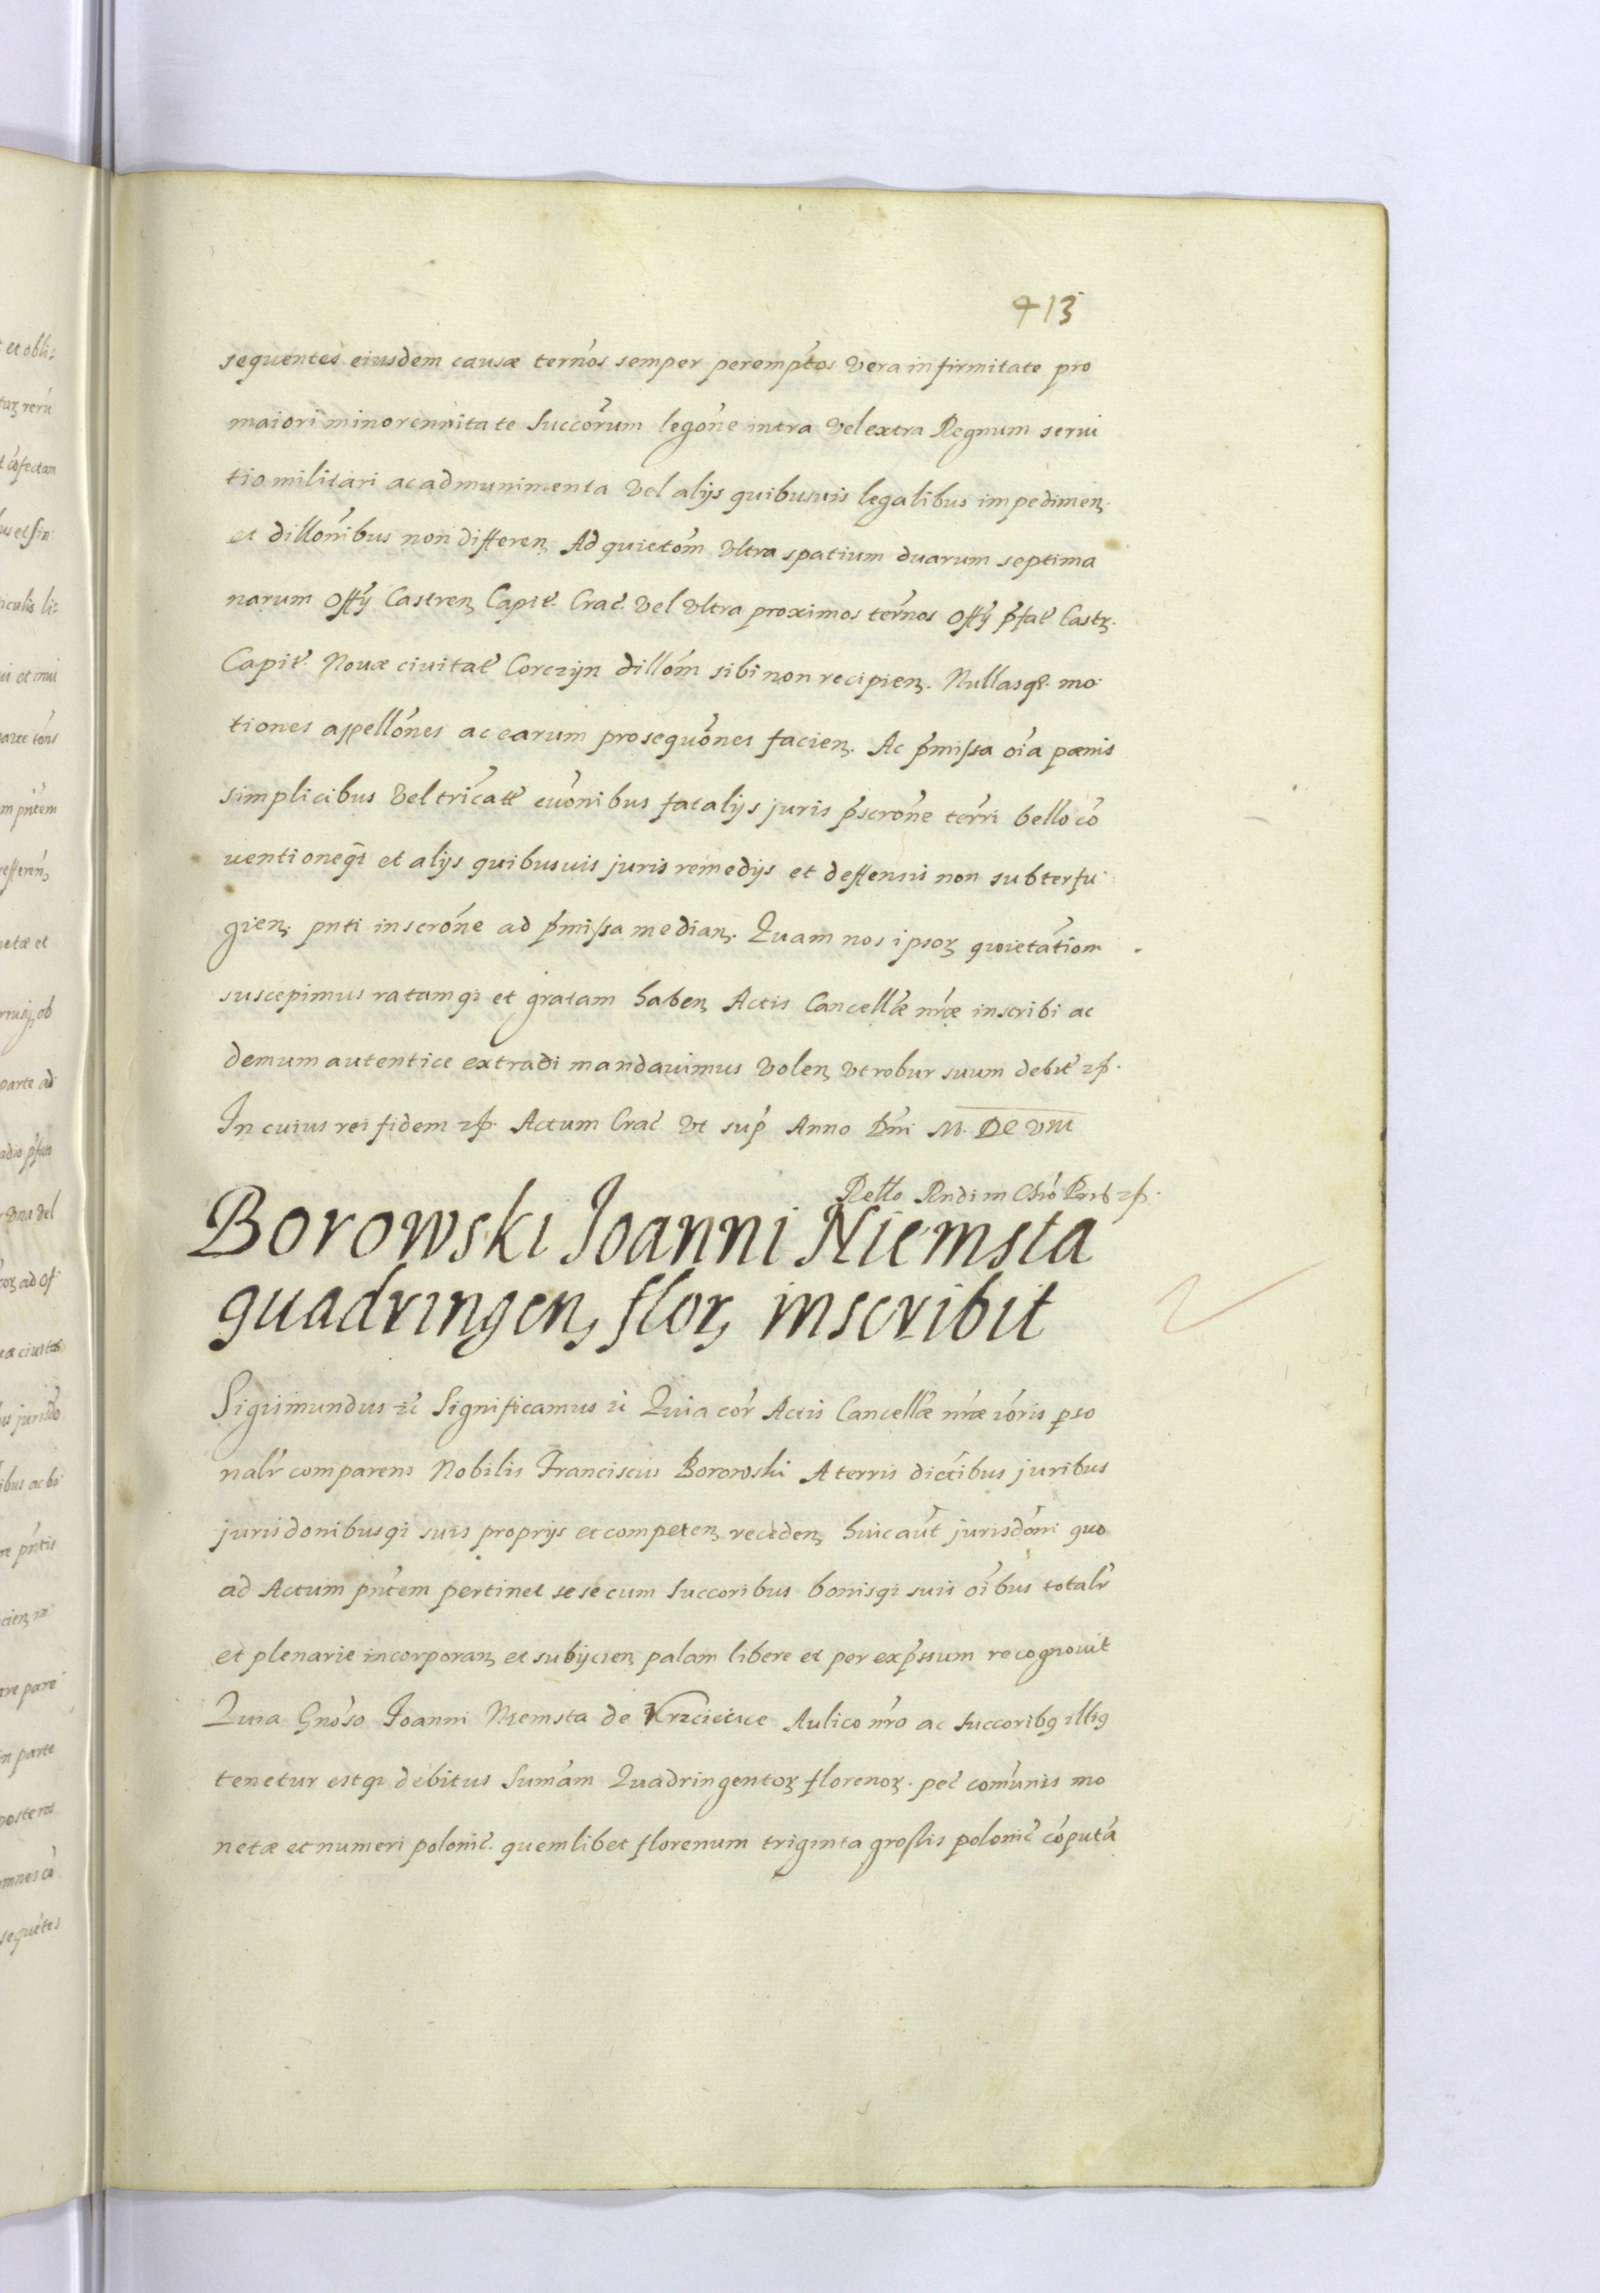 413
sequentes eiusdem causæ ter̃nos semper perempt̃os vera infirmitate pro
maiori minorennitate Succor̃um lego̅ne intra vel extra Regnum serui
tio militari ac ad munimenta vel alijs quibusuis legalibus impedimenꝫ.
et dillo̅nibus non differenꝫ Ad quieto̅m vltra spatium duarum septima
narum Offy̅ Castrenꝫ Capit̃. Crac̃. vel vltra proximos ter̃nos Offy̅ p̃fat̃ Castꝫ.
Capit̃. Nouæ ciuitat̃ Corczyn dillo̅m sibi non recipienꝫ. Nullasqꝫ. mo
tiones appello̅nes ac earum prosequo̅nes facienꝫ. Ac p̃missa oı̃a pænis
simplicibus vel tricat̃ euo̅nibus fatalijs juris p̃scro̅ne ter̃ri bello co̅
uentioneqꝫ et alijs quibusuis juris remedijs et deffensis non subterfu
gienꝫ pnti inscro̅ne ad p̃missa medianꝫ. Quam nos ipsoꝝ quietatiom
suscepimus ratamqꝫ et gratam habenꝫ Actis Cancellæ̃ nr̃æ inscribi ac
demum autentice extradi mandauimus volenꝫ vt robur suum debit̃ ꝛp.
In cuius rei fidem ꝛp. Actum Crac̃ vt sup̃ Anno Dn̅i M. DC VIII
Rel̃lo Rn̅di in Chr̃o Patris ꝛp.
Borowski Joanni Niemsta
quadringenꝫ florꝫ inscribit
Sigismundus ꝛc̃ Significamus ꝛc̃ Quia cor̃ Actis Cancellæ̃ nr̃æ ior̃is perso
nalr̃ comparens Nobilis Franciscus Borowski A terris dict̃ibus juribus
jurisdonibusqꝫ suis proprijs et competenꝫ recedenꝫ huic aut̃ jurisdo̅ni quo
ad Actum pn̅tem pertinet sese cum Succoribus bonisqꝫ suis oı̃bus totalr̃
et plenarie incorporanꝫ et subijcienꝫ palam libere et per exp̃ssum recognouit
Quia Gn̅oso Joanni Niemsta de Krzcięcice Aulico nr̃o ac Succoribꝰ illiꝰ
tenetur estqꝫ debitus Sum̃am Quadringentoꝝ florenoꝝ. pec̃ com̃unis mo
netæ et numeri polonic̃. quemlibet florenum triginta grossis polonic̃ co̅puta̅